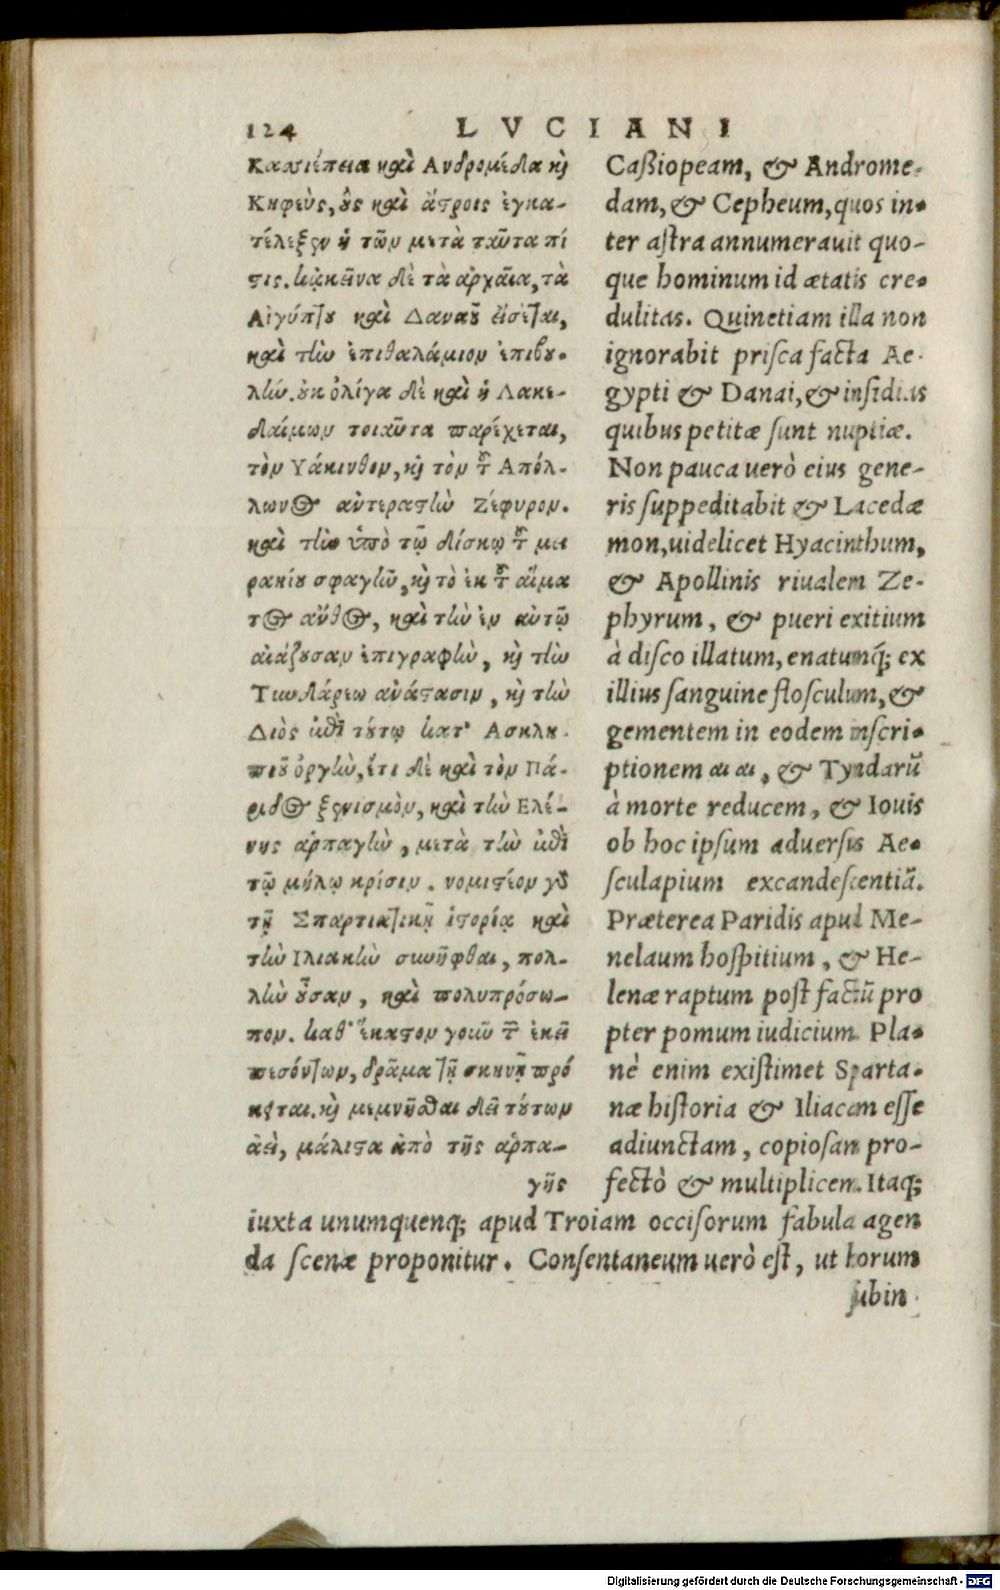 124 LVCIANI
Κασσιέπεια καὶ Ἀνδρομέδα καὶ
Κηφεὺς, οὓς καὶ ἄστροις ἐγκα-
τέλεξεν ἡ τῶν μετὰ ταῦτα πί
στις. κἀκεῖνα δὲ τὰ ἀρχαῖα, τὰ
Αἰγύπτου καὶ Δαναοῦ εἴσεται,
καὶ τὴν ἐπιθαλάμιον ἐπιβου-
λήν. οὐκ ὀλίγα δὲ καὶ ἡ Λακε-
δαίμων τοιαῦτα παρέχεται,
τὸν Υάκινθον, καὶ τὸν τοῦ Ἀπόλ-
λωνος ἀντεραστὴν Ζέφυρον.
καὶ τὴν ὑπὸ τῷ δίσκῳ τοῦ μει
ρακίου σφαγὴν, καὶ τὸ ἐκ τοῦ αἵμα
τος ἄνθος, καὶ τὴν ἐν αὐτῷ
αἰάζουσαν ἐπιγραφὴν, καὶ τὴν
Τυνδάρεω ἀνάστασιν, καὶ τὴν
Διὸς ἐπὶ τούτῳ κατ' Ἀσκλη-
πιοῦ ὀργὴν, ἔτι δὲ καὶ τὸν Πά-
ριδος ξενισμὸν, καὶ τὴν Ελέ-
νης ἁρπαγὴν, μετὰ τὴν ἐπὶ
τῷ μήλῳ κρίσιν. νομιστέον γὰρ
τῇ Σπαρτιατικῇ ἱστορίᾳ καὶ
τὴν Ιλιακὴν συνῆφθαι, πολ-
λὴν οὖσαν, καὶ πολυπρόσω-
πον. καθ' ἕκαστον γοῦν τῶν ἐκεῖ
πεσόντων, δρᾶμα τῇ σκηνῇ πρό
κειται. καὶ μεμνῆσθαι δεῖ τούτων
ἀεὶ, μάλιστα ἀπὸ τῆς ἁρπα-
γῆς
Caßiopeam, & Androme-
dam, & Cepheum, quos in-
ter astra annumerauit quo-
que hominum id ætatis cre-
dulitas. Quinetiam illa non
ignorabit prisca facta Ae-
gypti & Danai, & insidias
quibus petitæ sunt nuptiæ.
Non pauca uerò eius gene-
ris suppeditabit & Lacedæ
mon, uidelicet Hyacinthum,
& Apollinis riualem Ze-
phyrum, & pueri exitium
à disco illatum, enatumq́; ex
illius sanguine flosculum, &
gementem in eodem inscri-
ptionem αι αι, & Tyndarū
à morte reducem, & Iouis
ob hoc ipsum aduersis Ae-
sculapium excandescentiā.
Præterea Paridis apud Me-
nelaum hospitium, & He-
lenæ raptum post factū pro
pter pomum iudicium. Pla-
nè enim existimet Sparta-
næ historia & Iliacam esse
adiunctam, copiosam pro-
fectò & multiplicem. Itaq;
iuxta unumquenq; apud Troiam occisorum fabula agen
da scenæ proponitur. Consentaneum uerò est, ut horum
subin
Digitalisierung gefördert durch die Deutsche Forschungsgemeinschaft - DFG